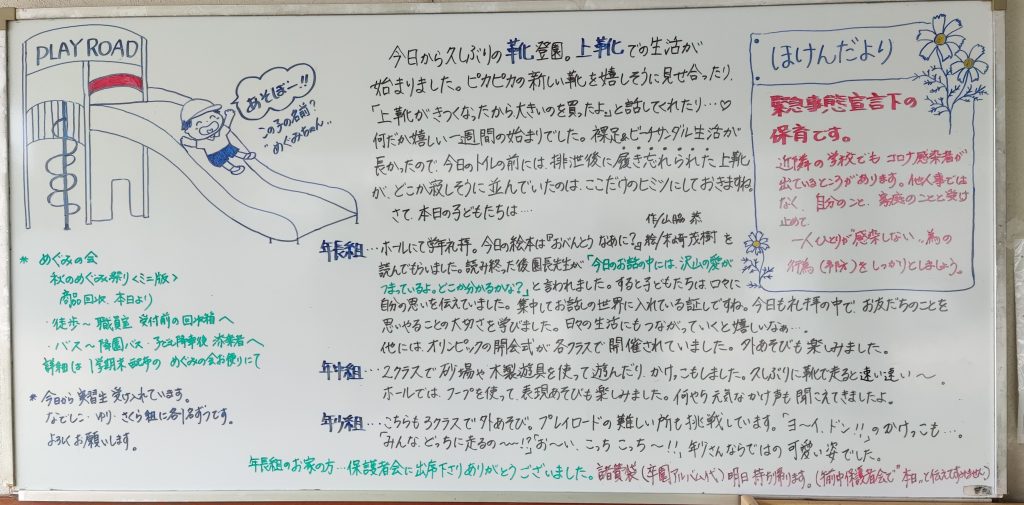 PLAY ROAD
あそぼー!!
この子の名前?
"めぐみちゃん"
今日から久しぶりの靴登園。上靴での生活が
始まりました。ピカピカの新しい靴を嬉しそうに見せ合ったり、
「上靴がきつくなったから大きいのを買ったよ」と話してくれたり…♡
何だか嬉しい一週間の始まりでした。裸足&ビーチサンダル生活が
長かったので、今日のトイレの前には排泄後に履き忘れられた上靴
が、どこか寂しそうに並んでいたのは、ここだけのヒミツにしておきますね。
さて、本日の子どもたちは…。
年長組…ホールにて学年礼拝。今日の絵本は『おべんとうなあに?』作/山脇 恭 絵/末崎茂樹 を
読んでもらいました。読み終った後園長先生が「今日のお話の中には、沢山の愛が
つまっているよ。どこか分かるかな?」と言われました。すると子どもたちは口々に
自分の思いを伝えていました。集中してお話の世界に入れている証しですね。今日も礼拝の中で、お友だちのことを
思いやることの大切さを学びました。日々の生活にもつながっていくと嬉しいなぁ…。
他には、オリンピックの開会式が各クラスで開催されていました。外あそびも楽しみました。
年中組…2クラスで砂場や木製遊具を使って遊んだり、かけっこもしました。久しぶりに靴で走ると速い速い〜。
ホールでは、フープを使って、表現あそびも楽しみました。何やら元気なかけ声も聞こえてきましたよ。
年少組…こちらも3クラスで外あそび。プレイロードの難しい所も挑戦しています。「ヨーイ、ドン!!」のかけっこも…。
「みんな、どっちに走るの〜〜!?」「お〜い、こっち こっち〜!!」年少さんならではの可愛い姿でした。
年長組のお家の方…保護者会に出席下さりありがとうございました。諸費袋(卒園アルバム代)明日持ち帰ります。(午前中保護者会で"本日"と伝えてすみません)
ほけんだより
緊急事態宣言下の
保育です。
近隣の学校でもコロナ感染者が
出ているところがあります。他人事では
なく、自分のこと、家庭のことと受け
止めて、
一人ひとりが"感染しない"為の
行為(予防)をしっかりとしましょう。
* めぐみの会
秋のめぐみ祭り<ミニ版>
商品回収、本日より
・徒歩〜職員室 受付前の回収箱へ
・バス〜降園バス・子ども降車後 添乗者へ
詳細は1学期末配布の めぐみの会お便りにて
* 今日から実習生受け入れています。
なでしこ・ゆり・さくら組に各1名ずつです。
よろしくお願いします。